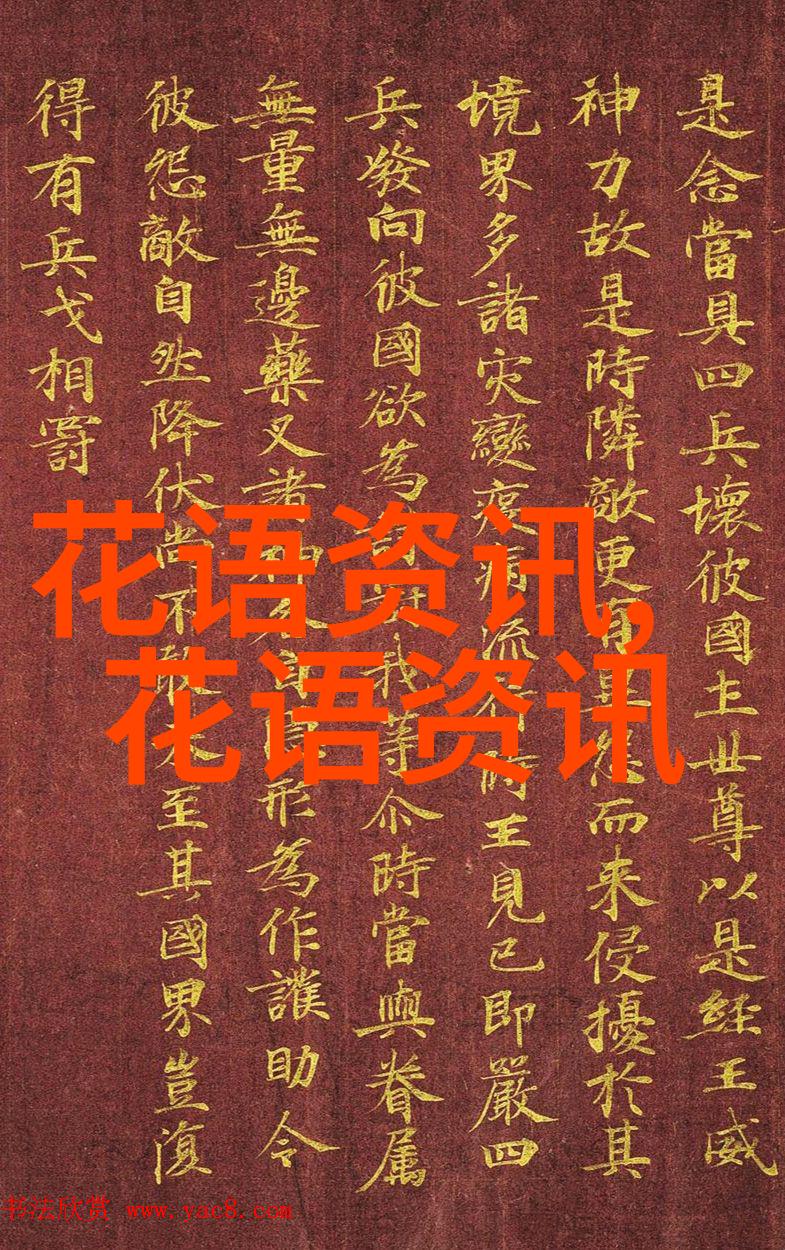 是念當具四兵壞彼國土世尊以是經王威
神力故是時隣敵更有異怨而来侵擾於其
境界多諸灾變疫病流行時王見已即嚴四
兵發向彼國欲為我等尒時當與眷属
無量無邊藥叉諸神各自形為作護助令
彼怨敵自然降伏尚不敢来至其國界豈復
得有兵戈相罸
花语资讯,
花语资讯
书法欣赏 www.yac8.com